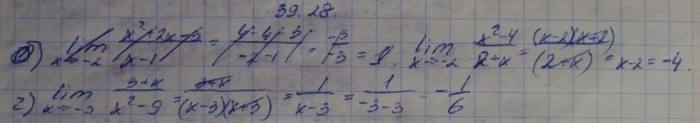 39.28.
1) lim x→-2 x²+2x-3 / x-1 = 4-4-3 / -2-1 = -3/-3 = 1. lim x→-2 x²-4 / 2+x = (x-2)(x+2) / (2+x) = x-2 = -4.
2) lim x→-3 3+x / x²-9 = 3+x / (x-3)(x+3) = 1 / x-3 = 1 / -3-3 = -1/6